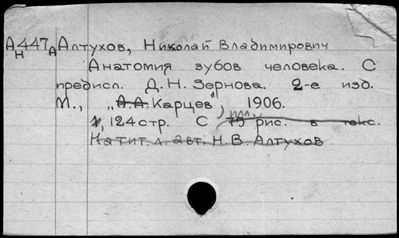 А447А Алтухов, Николай Владимирович
Н
Анатомия зубов человека. С
предисл. Д.Н. Зернова. 2-е изд.
М., „А.А. Карцев", 1906.
илл.
124 стр. С 75 рис. в текс.
На тит. л. авт. Н.В. Алтухов